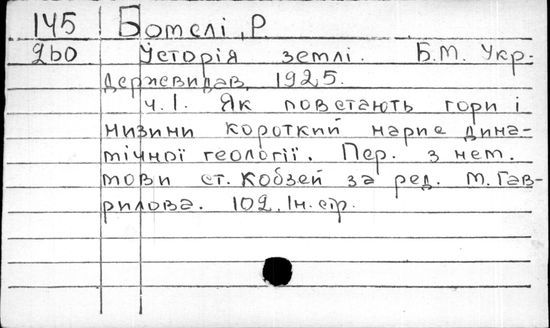 145 Ботелі, Р.
260 Історія землі. Б.М. Укр-
держвидав, 1925.
ч. I. Як повстають гори і
низини короткий нарис дина-
мічної геології. Пер. з нем.
мови ст. Кобзей за ред. М. Гав-
рилова. 102, Ін. стр.